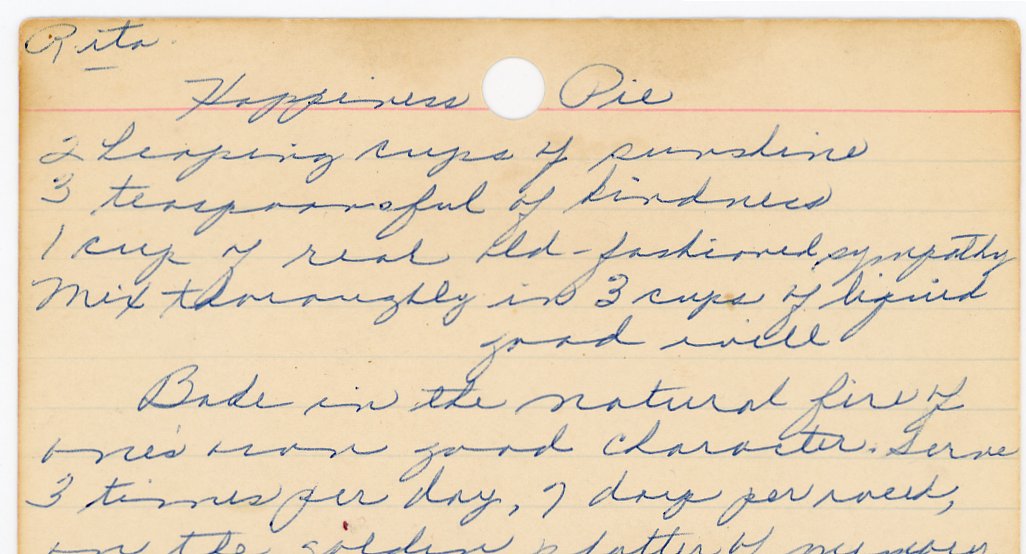 Rita
Happiness Pie
2 heaping cups of sunshine
3 teaspoonsful of kindness
1 cup of real old-fashioned sympathy
Mix thoroughly in 3 cups of liquid
good will
Bake in the natural fire of
one's own good character. Serve
3 times per day, 7 days per week,
on the golden platter of